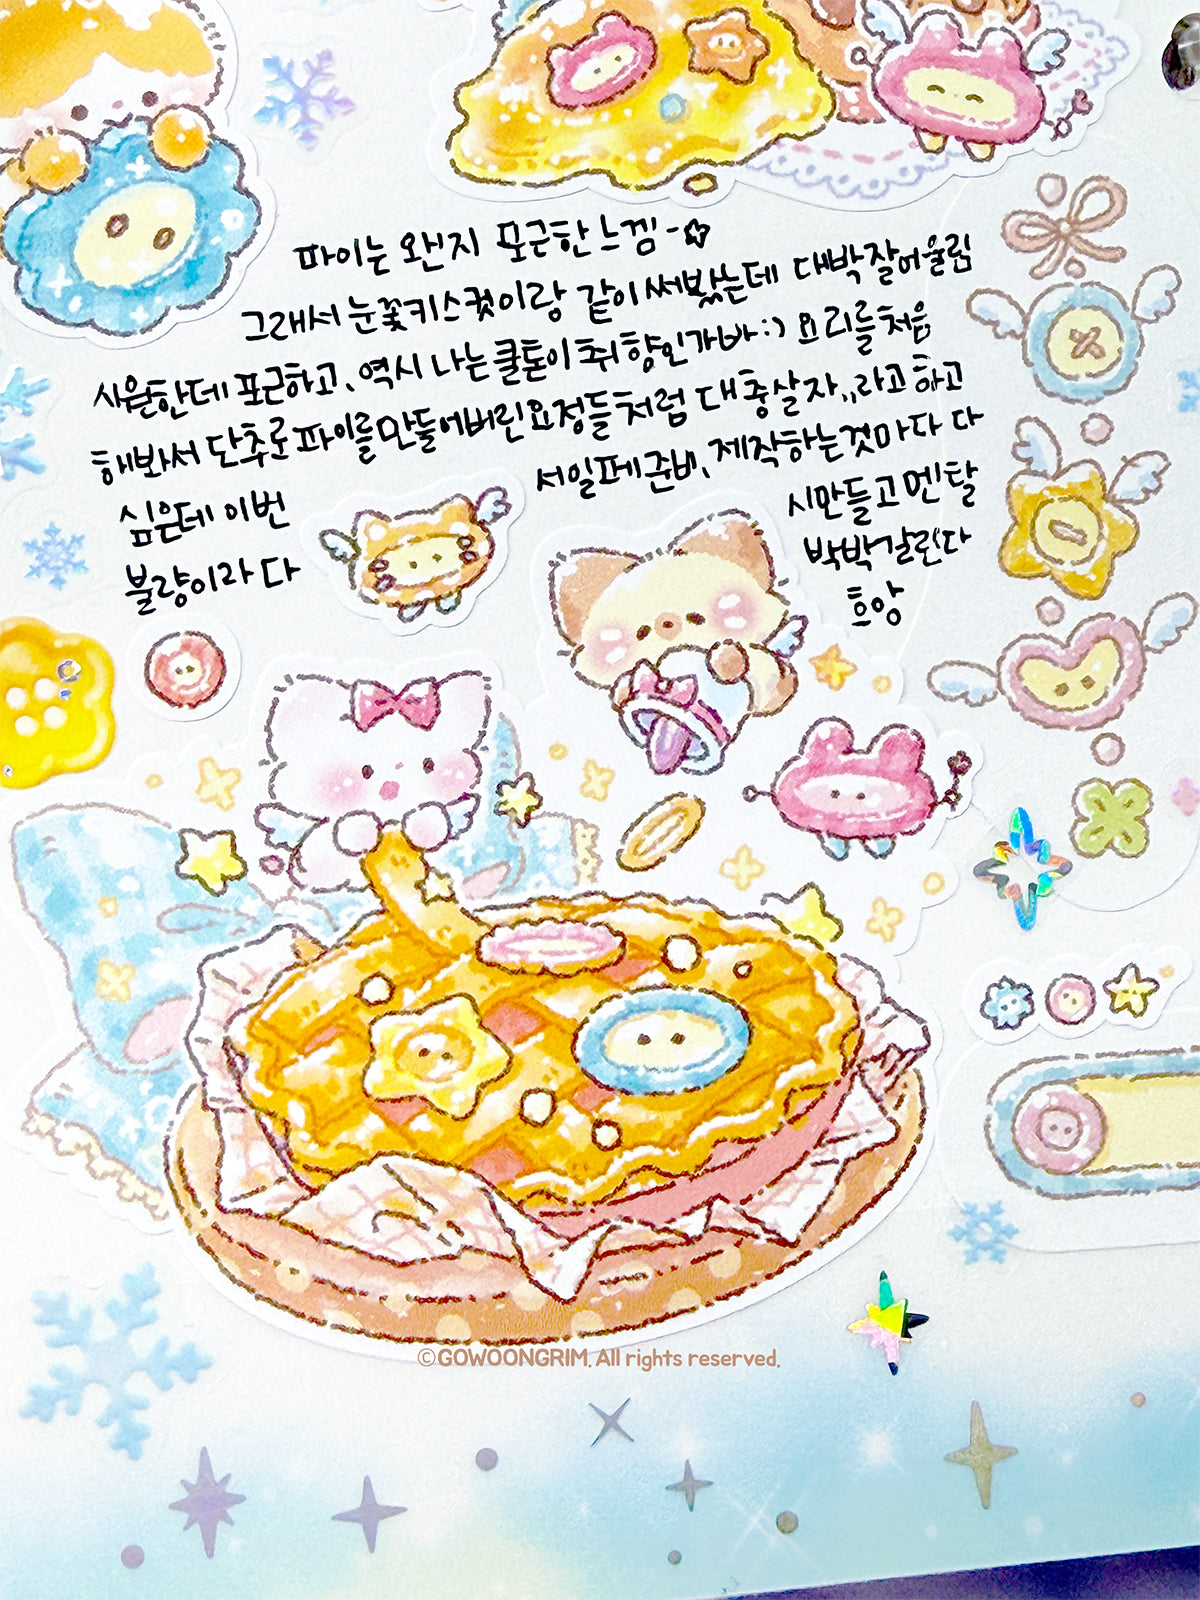 파이는 왠지 포근한 느낌-☆
그래서 눈꽃키스컷이랑 같이 써봤는데 대박 잘어울림
시원한데 포근하고, 역시 나는 쿨톤이 취향인가바:) 요리를 처음
해봐서 단추로 파이를 만들어버린 요정들처럼 대충살자,,라고 하고
싶은데 이번 서일페 준비, 제작하는것마다 다
불량이라 다 시만들고 멘탈
박박갈린다
흐앙
©GOWOONGRIM. All rights reserved.